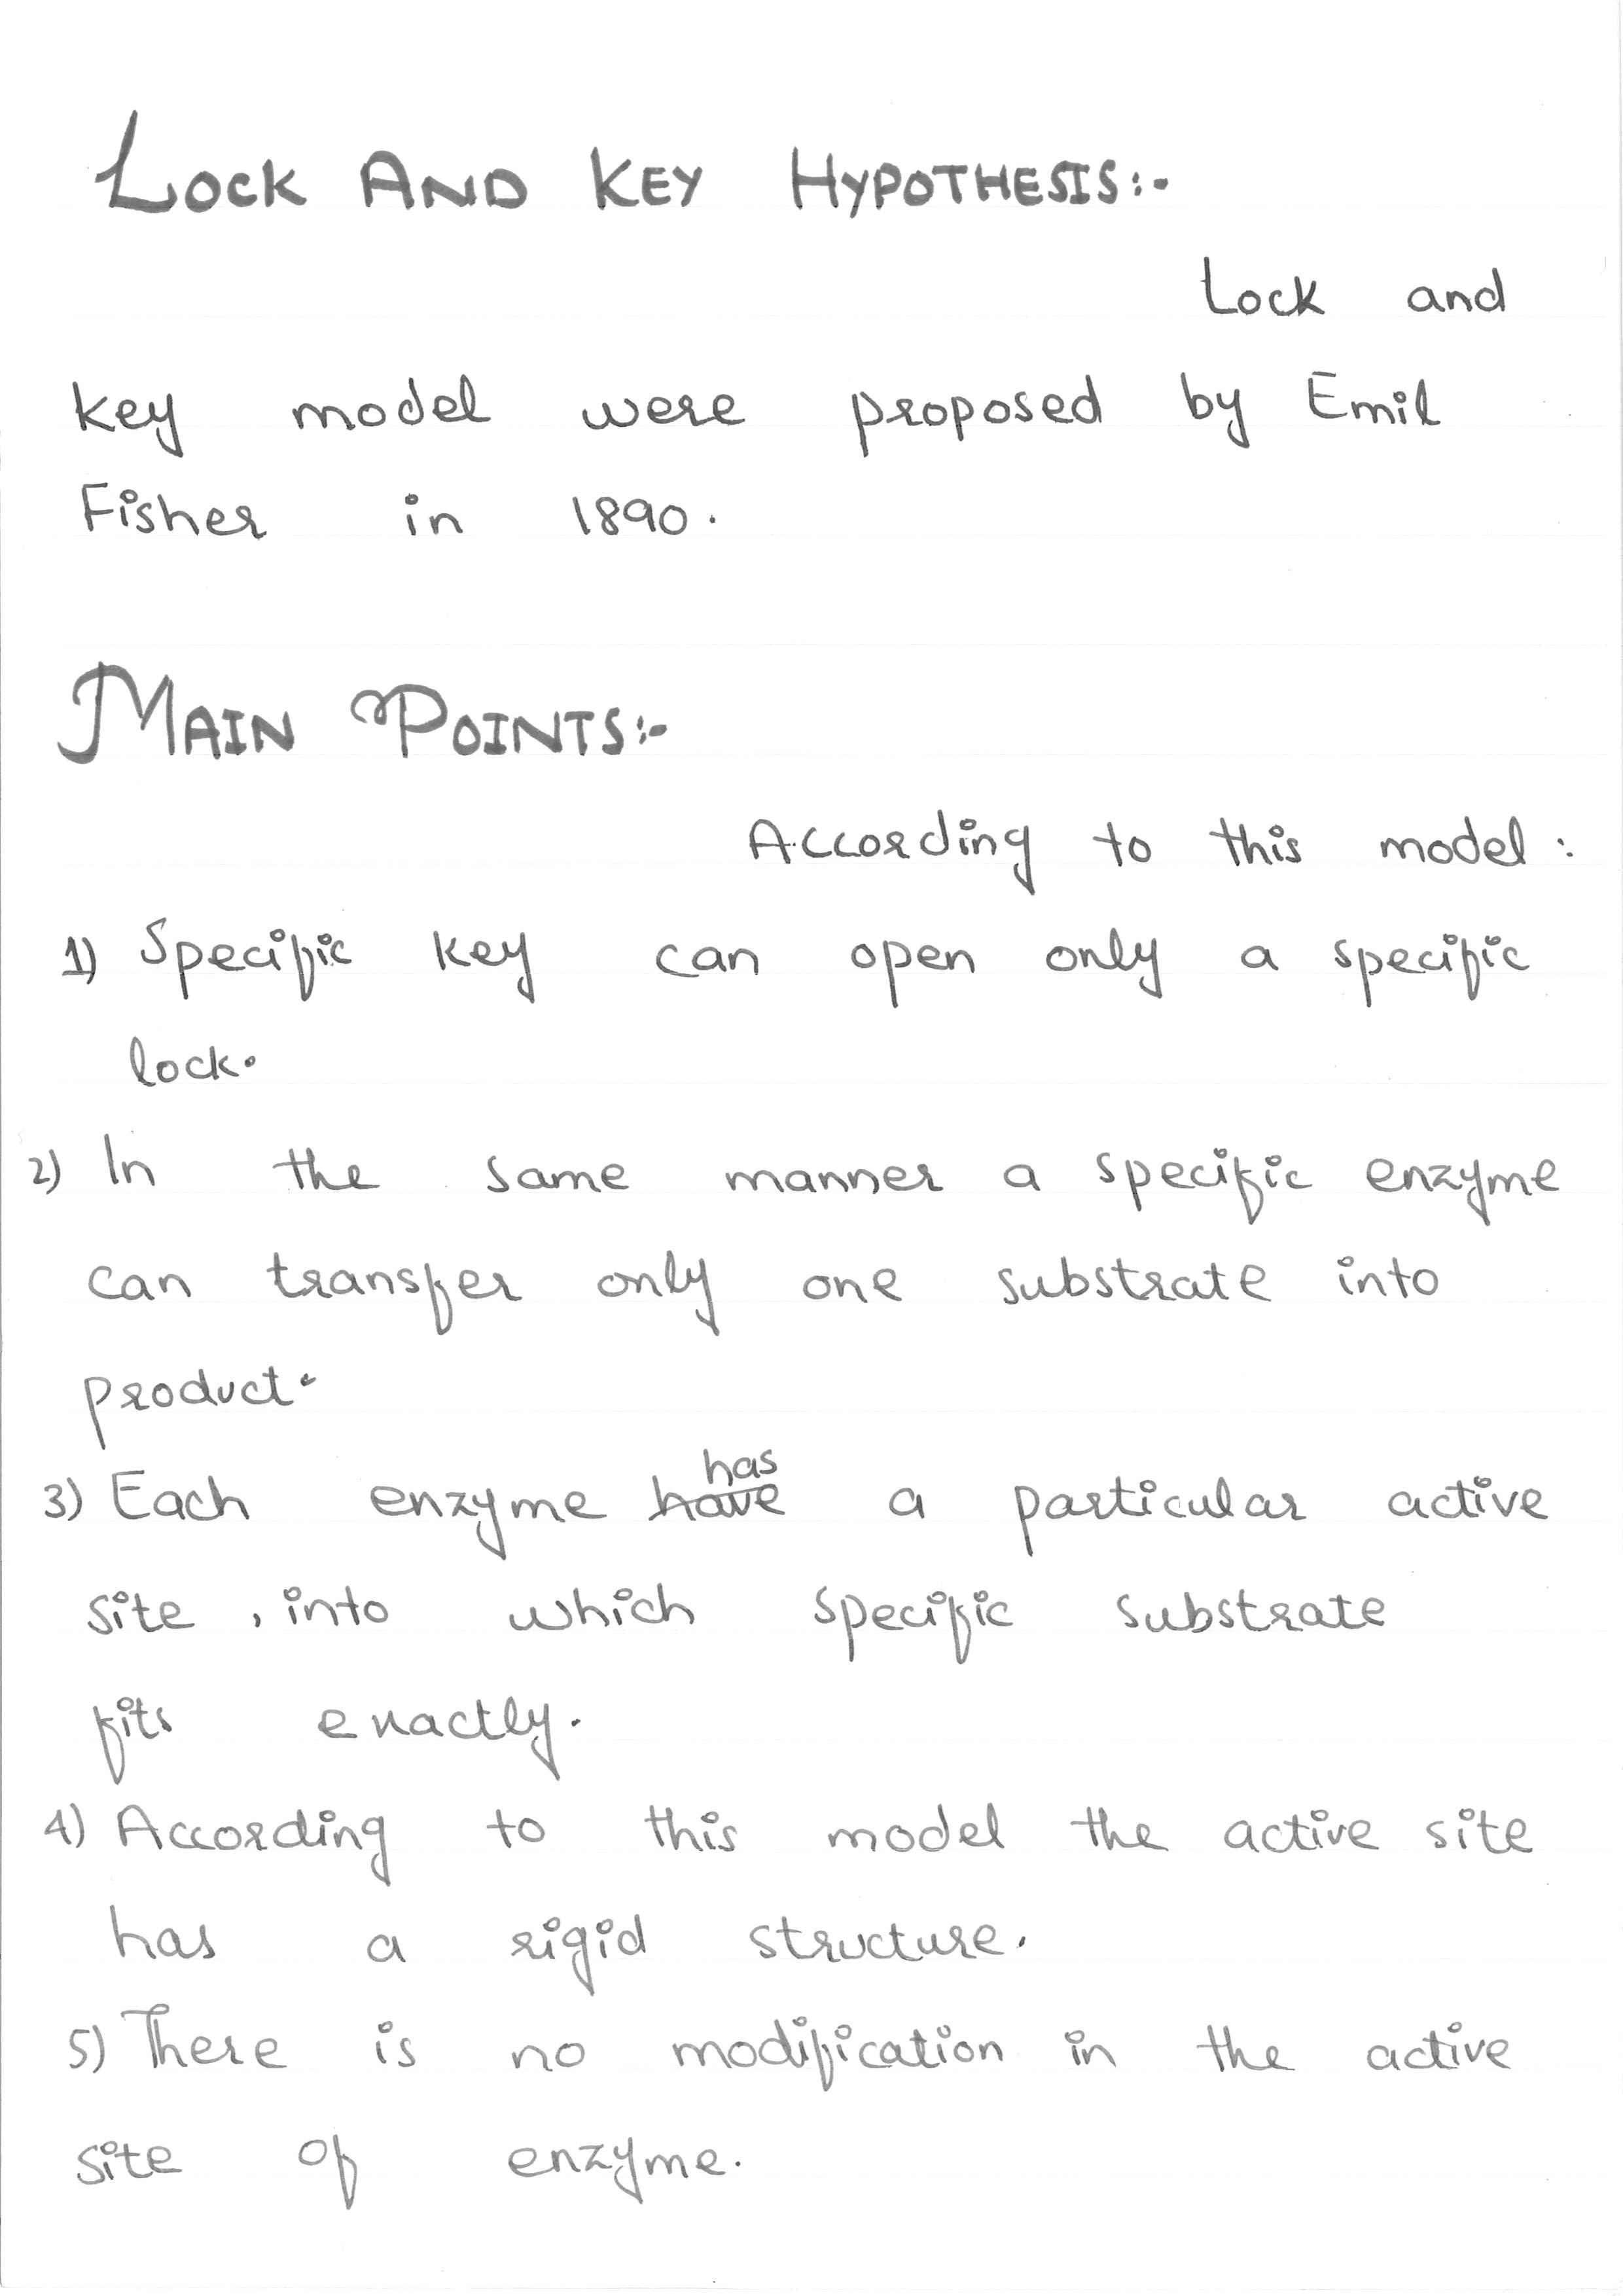 LOCK AND KEY HYPOTHESIS:-
Lock and
key model were proposed by Emil
Fisher in 1890.
MAIN POINTS:-
According to this model :
1) Specific key can open only a specific
lock.
2) In the same manner a specific enzyme
can transfer only one substrate into
product.
has
3) Each enzyme have a particular active
site , into which specific substrate
fits exactly.
4) According to this model the active site
has a rigid structure.
5) There is no modification in the active
site of enzyme.